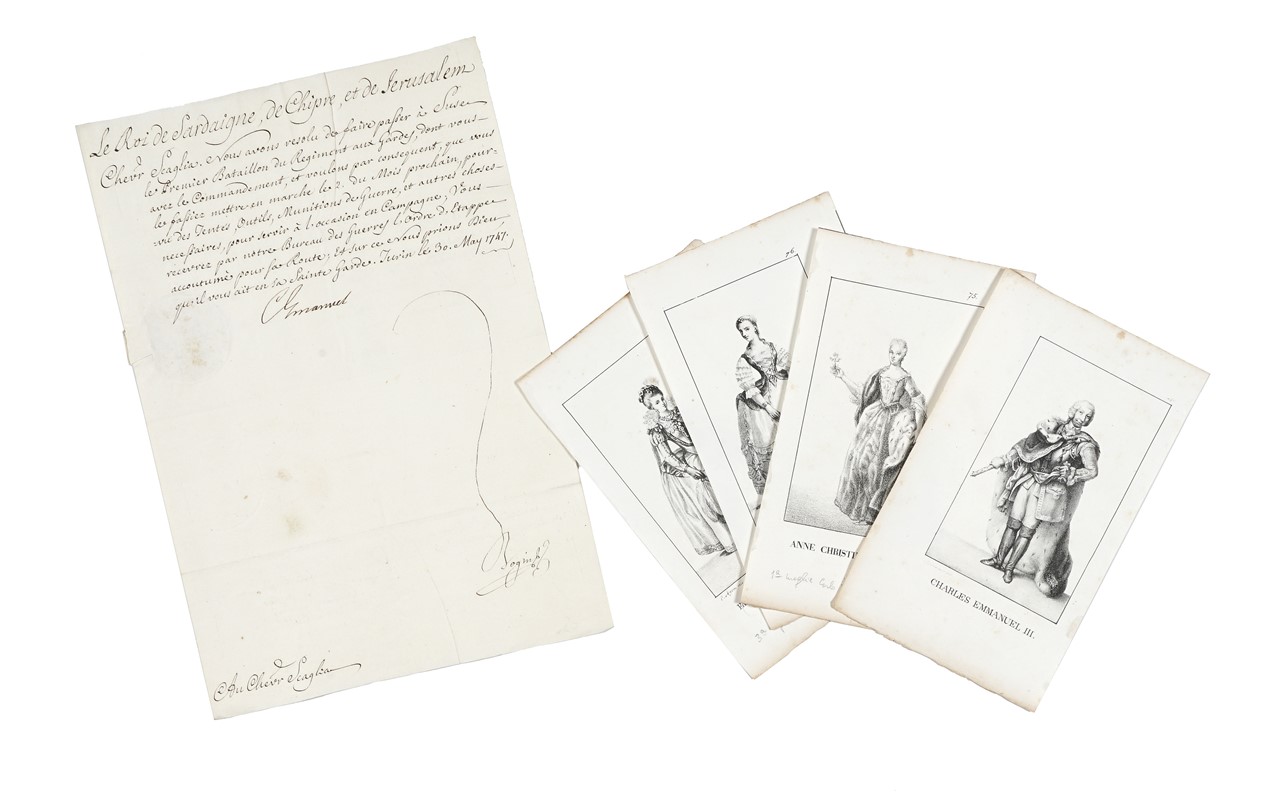 Le Roi de Sardaigne, de Chipre, et de Jerusalem
Chevr. Scaglia. Nous avons resolu de faire passer à Suse
le Premier Bataillon du Regiment aux Gardes, dont vous
avez le Commandement, et voulons par consequent, que vous
le fassiez mettre en marche le 2. du Mois prochain, pour-
vû des Tentes, Outils, Munitions de Guerre, et autres choses
necessaires, pour servir à l'occasion en Campagne; Vous
recevrez par notre Bureau des Guerres l'Ordre d'Etappe
accoutumé pour sa Route; Et sur ce Nous prions Dieu
qu'il vous ait en sa Sainte Garde. Turin le 30. May 1747.
CEmanuel
Bogino
Au Chevr. Scaglia
76.
75.
ANNE CHRISTI
1a moglie Carlo
CHARLES EMMANUEL III.